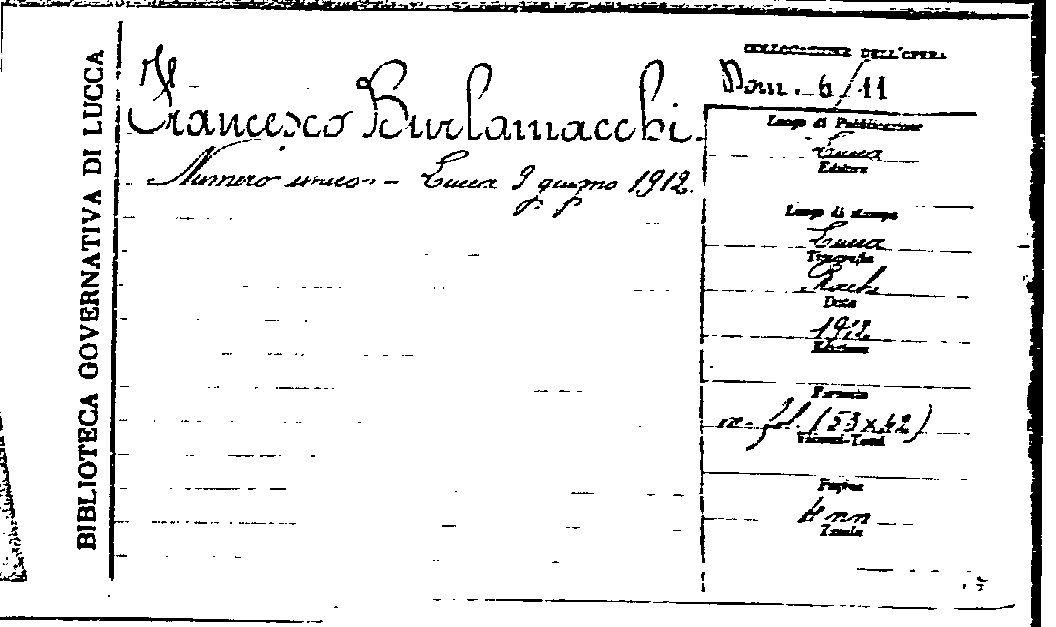 BIBLIOTECA GOVERNATIVA DI LUCCA
Francesco Burlamacchi.
Numero unico - Lucca 9 giugno 1912.
COLLOCAZIONE DELL'OPERA
Dom. 6/11
Luogo di Pubblicazione
Lucca
Editore
Luogo di stampa
Lucca
Tipografia
Data
1912
Formato
in-fol. (53x42)
Volumi-Tomi
Pagine
4 nn
Tavole